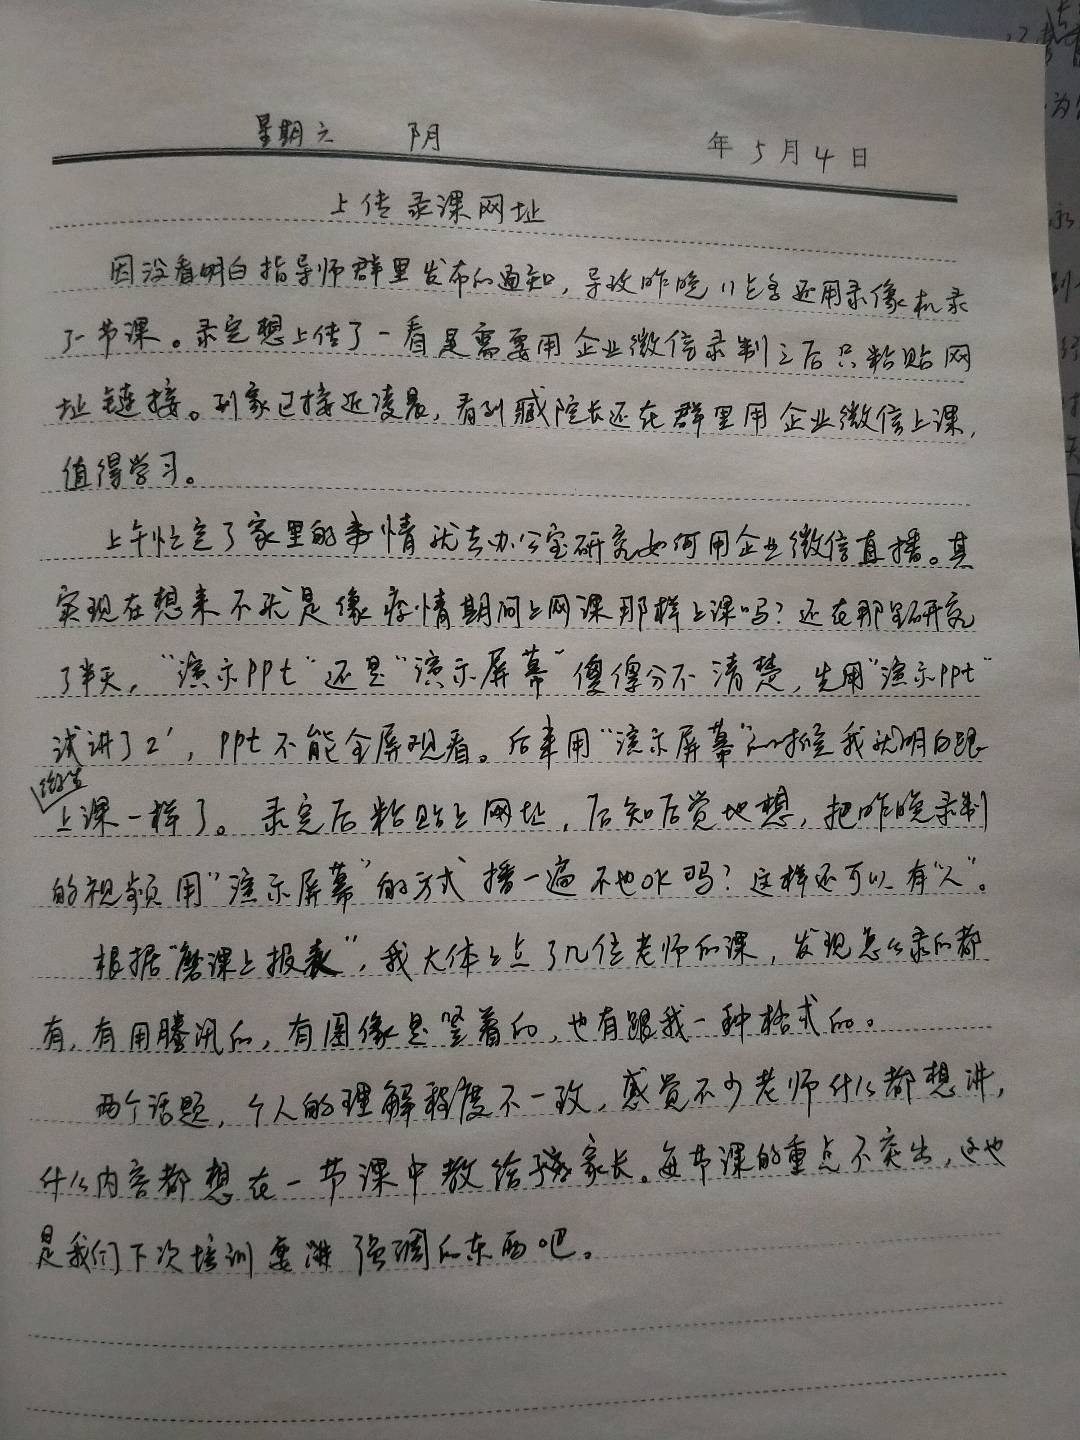 星期六 阴 年5月4日
上传录课网址
因没看明白指导师群里发布的通知，导致昨晚11点多还用录像机录
了一节课。录完想上传了一看是需要用企业微信录制之后只粘贴网
址链接。到家已接近凌晨，看到臧院长还在群里用企业微信上课，
值得学习。
上午忙完了家里的事情就去办公室研究如何用企业微信直播。其
实现在想来不就是像疫情期间上网课那样上课吗？还在那里研究
了半天，“演示ppt”还是“演示屏幕”傻傻分不清楚，先用“演示ppt”
试讲了2′，ppt不能全屏观看。后来用“演示屏幕”我就明白跟
上课一样了。录完后粘贴上网址，后知后觉地想，把昨晚录制
的视频用“演示屏幕”的方式播一遍不也OK吗？这样还可以有“人”。
根据“磨课上报表”，我大体上点了几位老师的课，发现怎么录的都
有，有用腾讯的，有图像是竖着的，也有跟我一种格式的。
两个话题，个人的理解程度不一致，感觉不少老师什么都想讲，
什么内容都想在一节课中教给家长。每节课的重点不突出，这也
是我们下次培训要讲强调的东西吧。